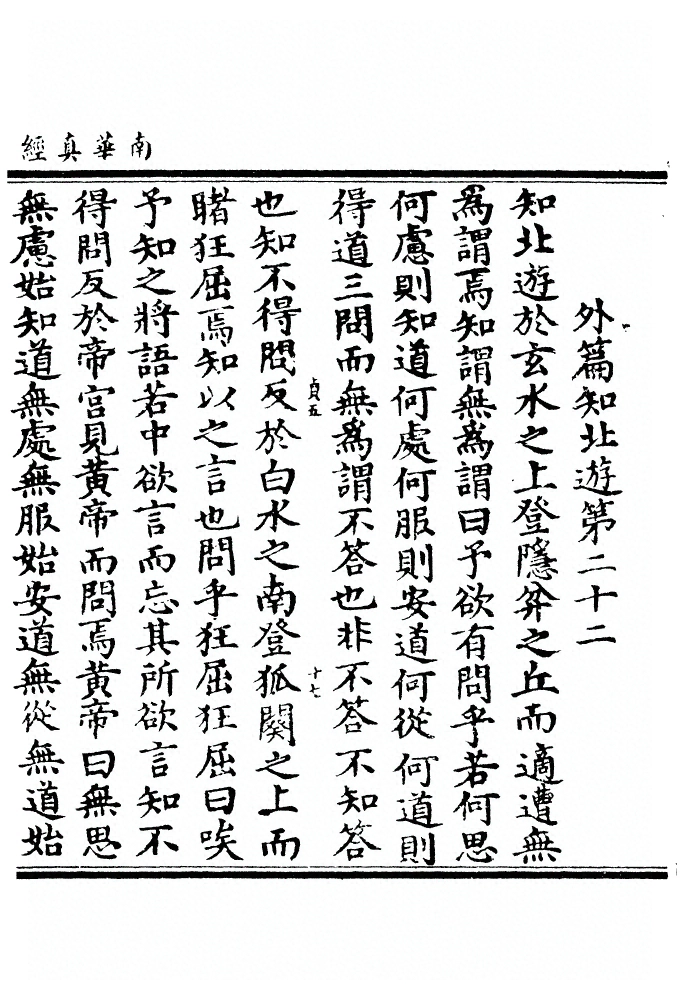 南華真經
外篇知北遊第二十二
知北遊於玄水之上登隱弅之丘而適遭無
爲謂焉知謂無爲謂曰予欲有問乎若何思
何慮則知道何處何服則安道何從何道則
得道三問而無爲謂不答也非不答不知答
貞五
十七
也知不得問反於白水之南登狐闋之上而
睹狂屈焉知以之言也問乎狂屈狂屈曰唉
予知之將語若中欲言而忘其所欲言知不
得問反於帝宮見黃帝而問焉黃帝曰無思
無慮始知道無處無服始安道無從無道始